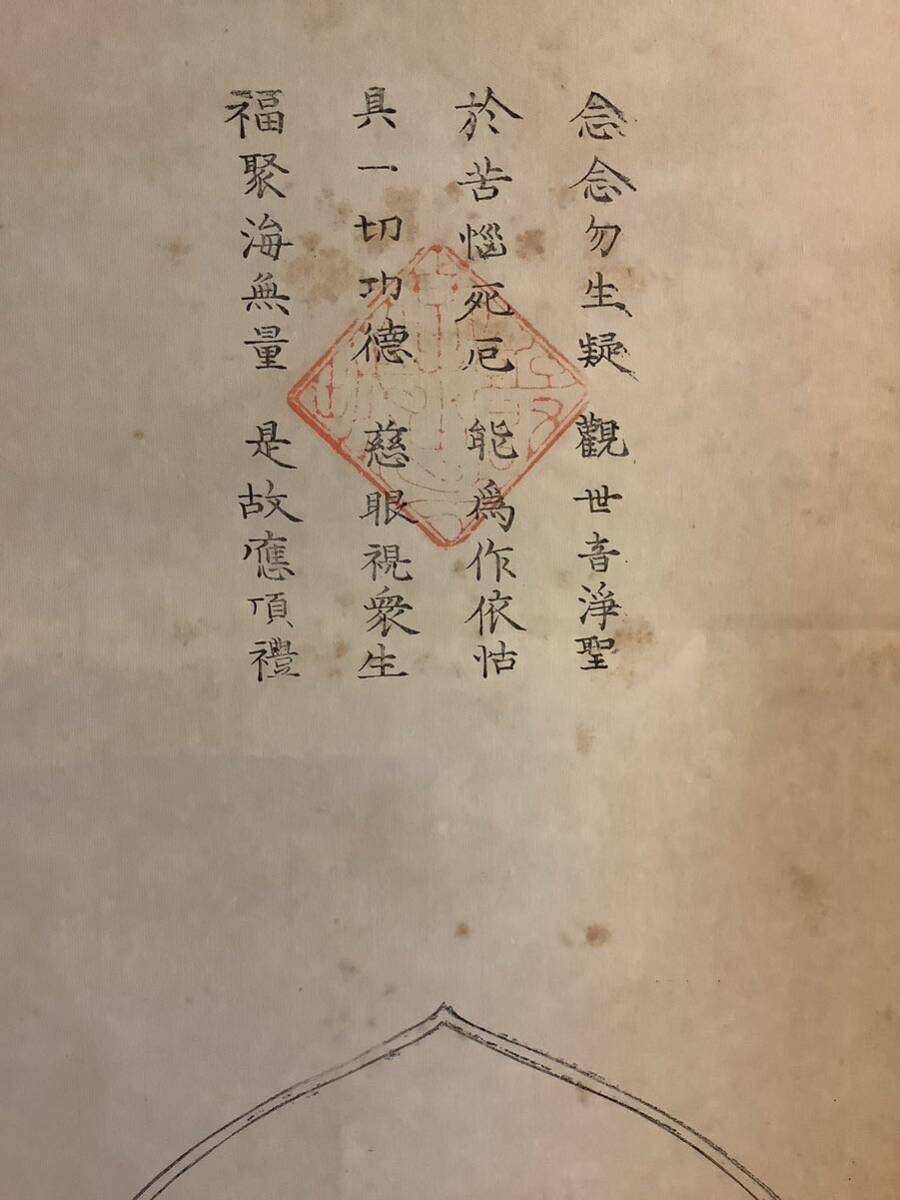 念念勿生疑 觀世音淨聖
於苦惱死厄 能爲作依怙
具一切功德 慈眼視衆生
福聚海無量 是故應頂禮